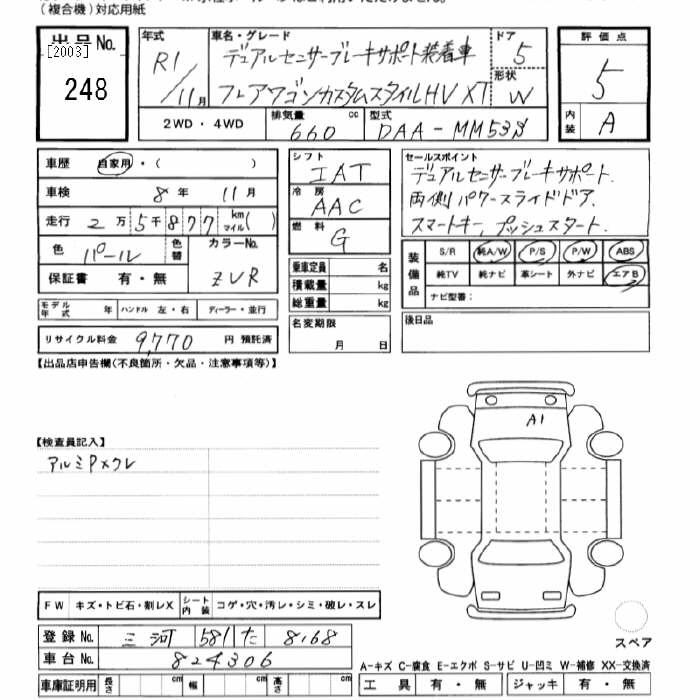 (複合機)対応用紙
出品No.
[2003]
248
年式
R1/11月
車名・グレード
デュアルセンサーブレーキサポート装着車
フレアワゴンカスタムスタイルHV XT
ドア
5
形状
W
評価点
5
内装
A
2WD・4WD
排気量
660cc
型式
DAA-MM53S
車歴
自家用・( )
車検
8年 11月
走行
2万5千877 km マイル( )
色
パール
色替
カラーNo.
ZVR
保証書 有・無
モデル年式 年 ハンドル 左・右 ディーラー・並行
リサイクル料金 9,770 円 預託済
シフト
IAT
冷房
AAC
燃料
G
乗車定員 名
積載量 kg
総重量 kg
名変期限
月 日
セールスポイント
デュアルセンサーブレーキサポート.
両側パワースライドドア.
スマートキー, プッシュスタート.
装備品
S/R 純A/W P/S P/W ABS
純TV 純ナビ 革シート 外ナビ エアB
ナビ型番:
後日品
【出品店申告欄(不良箇所・欠品・注意事項等)】
【検査員記入】
アルミPメクレ
A1
FW キズ・トビ石・割レX シート内装 コゲ・穴・汚レ・シミ・破レ・スレ
登録No. 三河 581 た 8168
車台No. 824306
車庫証明用 長さ cm 幅 cm 高さ cm
スペア
A-キズ C-腐食 E-エクボ S-サビ U-凹ミ W-補修 XX-交換済
工具 有・無 ジャッキ 有・無